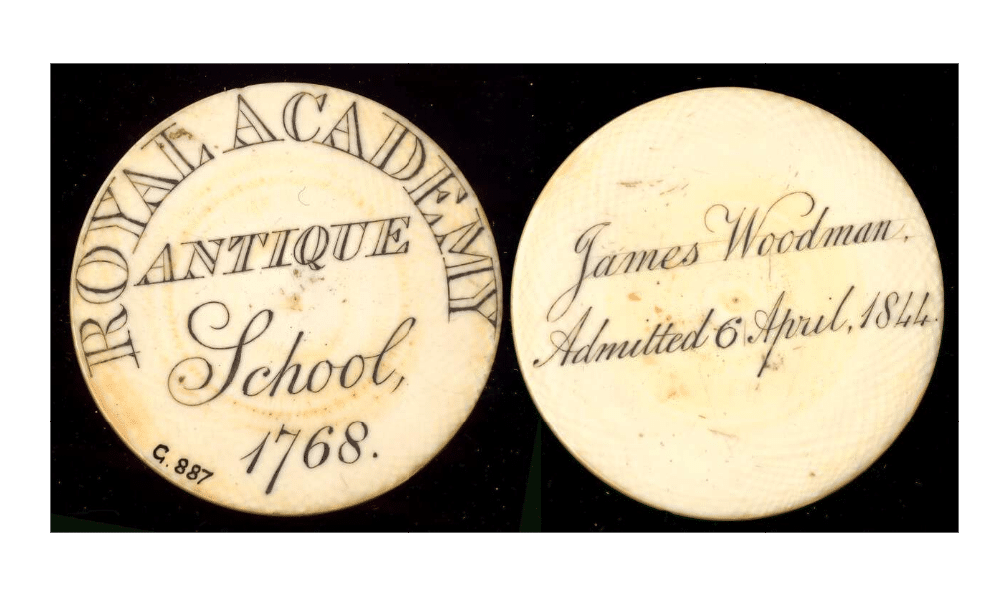 ROYAL ACADEMY
ANTIQUE
School,
1768.
G. 887
James Woodman.
Admitted 6 April, 1844.